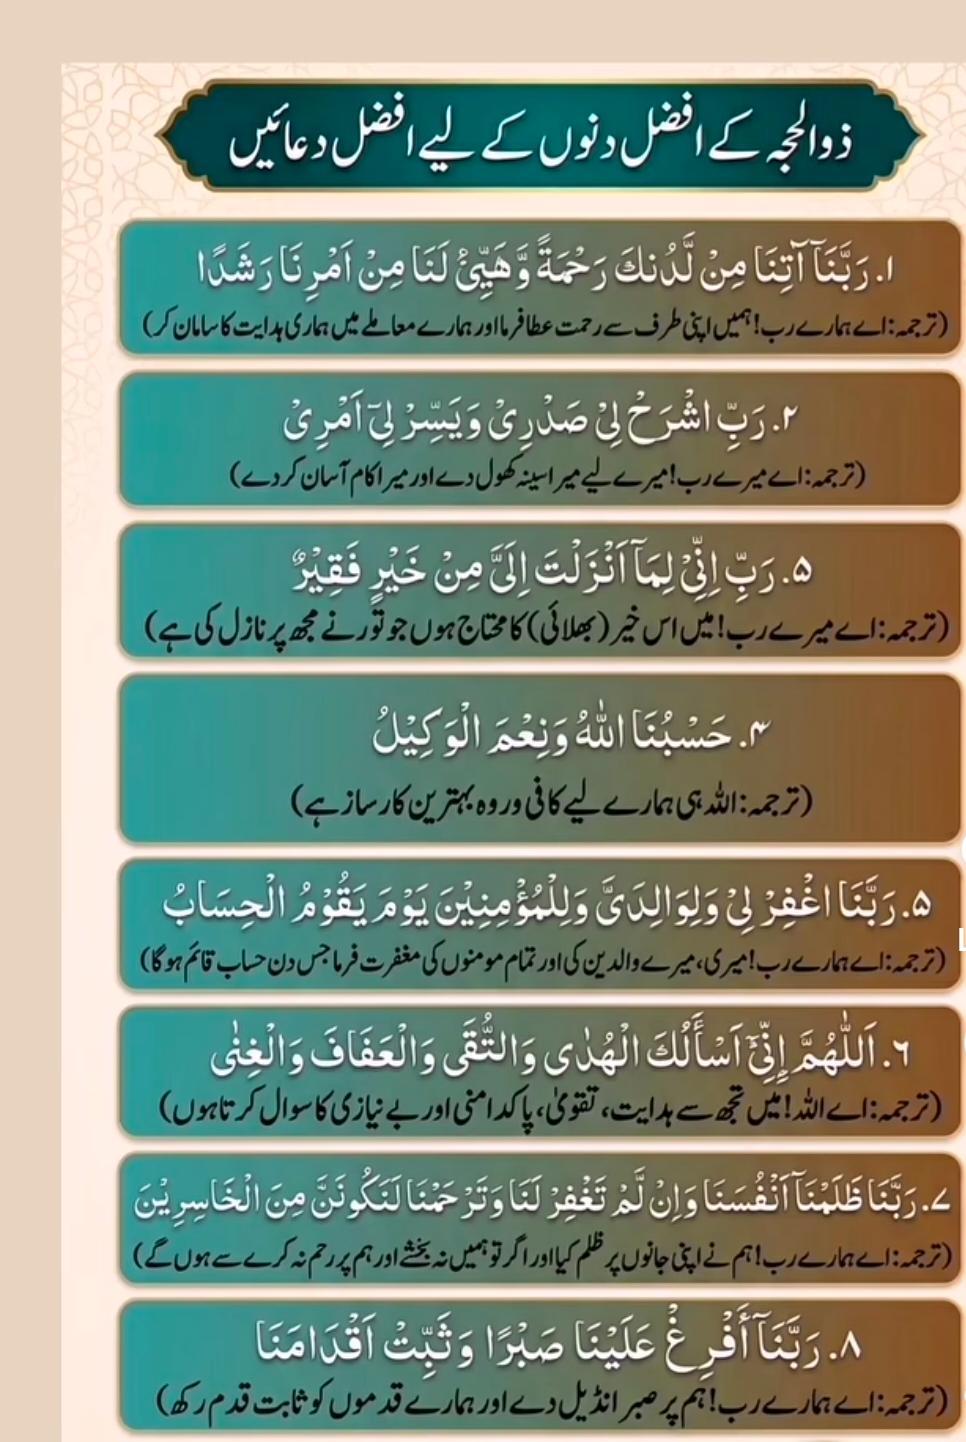 ذوالحجہ کے افضل دنوں کے لیے افضل دعائیں
۱. رَبَّنَآ آتِنَا مِنْ لَّدُنكَ رَحْمَةً وَّهَيِّئْ لَنَا مِنْ اَمْرِنَا رَشَدًا
(ترجمہ: اے ہمارے رب! ہمیں اپنی طرف سے رحمت عطا فرما اور ہمارے معاملے میں ہماری ہدایت کا سامان کر)
۲. رَبِّ اشْرَحْ لِيْ صَدْرِيْ وَيَسِّرْ لِيٓ اَمْرِيْ
(ترجمہ: اے میرے رب! میرے لیے میرا سینہ کھول دے اور میرا کام آسان کر دے)
۵. رَبِّ اِنِّيْ لِمَآ اَنْزَلْتَ اِلَيَّ مِنْ خَيْرٍ فَقِيْرٌ
(ترجمہ: اے میرے رب! میں اس خیر (بھلائی) کا محتاج ہوں جو تو نے مجھ پر نازل کی ہے)
۴. حَسْبُنَا اللّٰهُ وَنِعْمَ الْوَكِيْلُ
(ترجمہ: اللہ ہی ہمارے لیے کافی ور وہ بہترین کارساز ہے)
۵. رَبَّنَا اغْفِرْ لِيْ وَلِوَالِدَيَّ وَلِلْمُؤْمِنِيْنَ يَوْمَ يَقُوْمُ الْحِسَابُ
(ترجمہ: اے ہمارے رب! میری، میرے والدین کی اور تمام مومنوں کی مغفرت فرما جس دن حساب قائم ہو گا)
۶. اَللّٰهُمَّ اِنِّيْٓ اَسْأَلُكَ الْهُدٰى وَالتُّقَى وَالْعَفَافَ وَالْغِنٰى
(ترجمہ: اے اللہ! میں تجھ سے ہدایت، تقویٰ، پاکدامنی اور بے نیازی کا سوال کرتا ہوں)
۷. رَبَّنَا ظَلَمْنَآ اَنْفُسَنَا وَاِنْ لَّمْ تَغْفِرْ لَنَا وَتَرْحَمْنَا لَنَكُونَنَّ مِنَ الْخَاسِرِيْنَ
(ترجمہ: اے ہمارے رب! ہم نے اپنی جانوں پر ظلم کیا اور اگر تو ہمیں نہ بخشے اور ہم پر رحم نہ کرے سے ہوں گے)
۸. رَبَّنَآ أَفْرِغْ عَلَيْنَا صَبْرًا وَثَبِّتْ اَقْدَامَنَا
(ترجمہ: اے ہمارے رب! ہم پر صبر انڈیل دے اور ہمارے قدموں کو ثابت قدم رکھ)